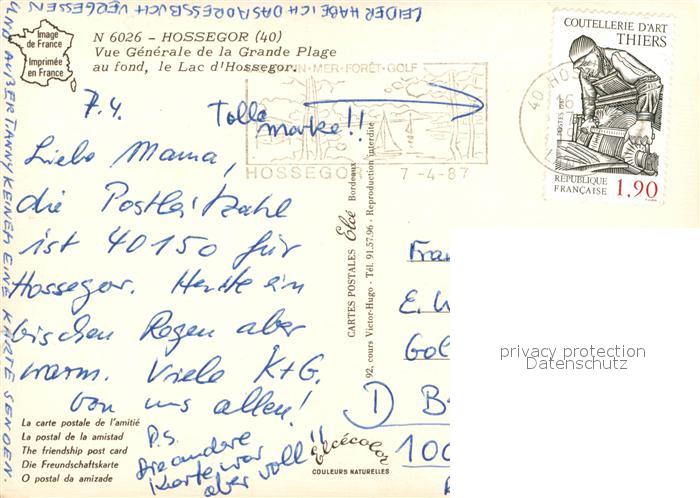 LEIDER HABE ICH DAS ADRESSBUCH VERGESSEN
UND AUßER TANNY KEINEM EINE KARTE SENDEN.
Image
de France
Imprimée
en France
N 6026 – HOSSEGOR (40)
Vue Générale de la Grande Plage
au fond, le Lac d'Hossegor.
MER-FORÊT-GOLF
HOSSEGOR 7-4-87
40 HOS
16
COUTELLERIE D'ART
THIERS
POSTES 1987
RÉPUBLIQUE
FRANÇAISE 1,90
7.4.
Tolle
marke!!
Liebe Mama,
die Postleitzahl
ist 40150 für
Hossegor. Heute ein
bischen Regen aber
warm. Viele K+G.
von uns allen!
P.S.
Die andere
Karte war
aber voll!!
La carte postale de l'amitié
La postal de la amistad
The friendship post card
Die Freundschaftskarte
O postal da amizade
CARTES POSTALES Elcé Bordeaux
92, cours Victor-Hugo - Tél. 91.57.96 - Reproduction interdite
Elcécolor
COULEURS NATURELLES
Frau
E. W
Gol
D B
100
privacy protection
Datenschutz